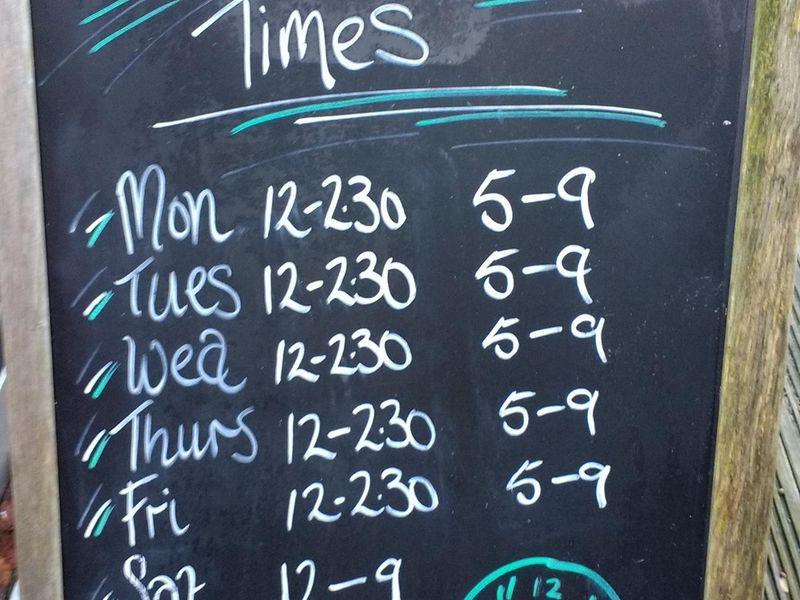 Times
Mon 12-2.30 5-9
Tues 12-2.30 5-9
Wed 12-2.30 5-9
Thurs 12-2.30 5-9
Fri 12-2.30 5-9
Sat 12-9
11 12